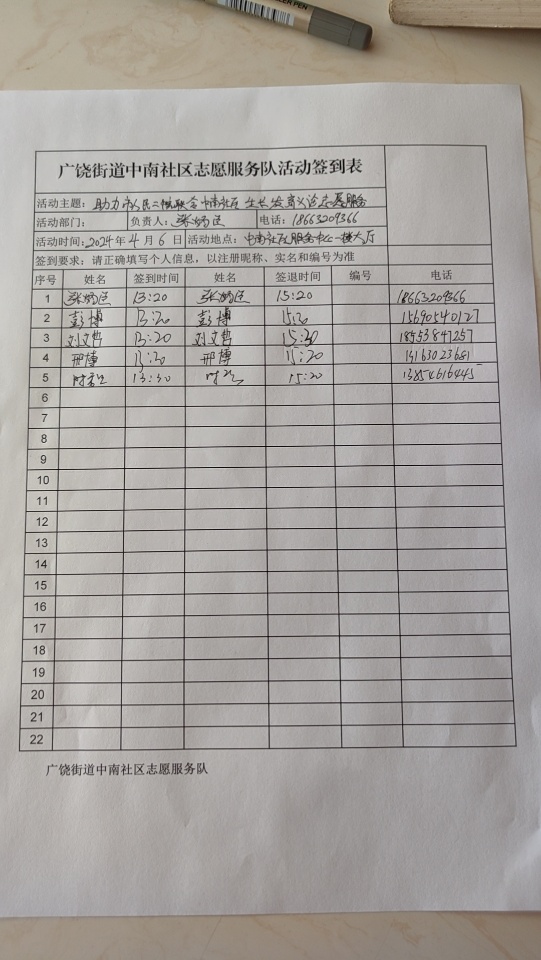 广饶街道中南社区志愿服务队活动签到表
活动主题：助力市人民二院联合中南社区生长发育义诊志愿服务
活动部门： 负责人： 电话：18663209366
活动时间：2024年4月6日 活动地点：中南社区服务中心一楼大厅
签到要求：请正确填写个人信息，以注册昵称、实名和编号为准
序号 姓名 签到时间 姓名 签退时间 编号 电话
1 13:20 15:20 18663209366
2 彭博 13:20 彭博 15:20 15690540127
3 刘文哲 13:20 刘文哲 15:20 18553847257
4 邢博 13:20 邢博 15:20 15163023681
5 13:30 15:20 13854616445
6
7
8
9
10
11
12
13
14
15
16
17
18
19
20
21
22
广饶街道中南社区志愿服务队